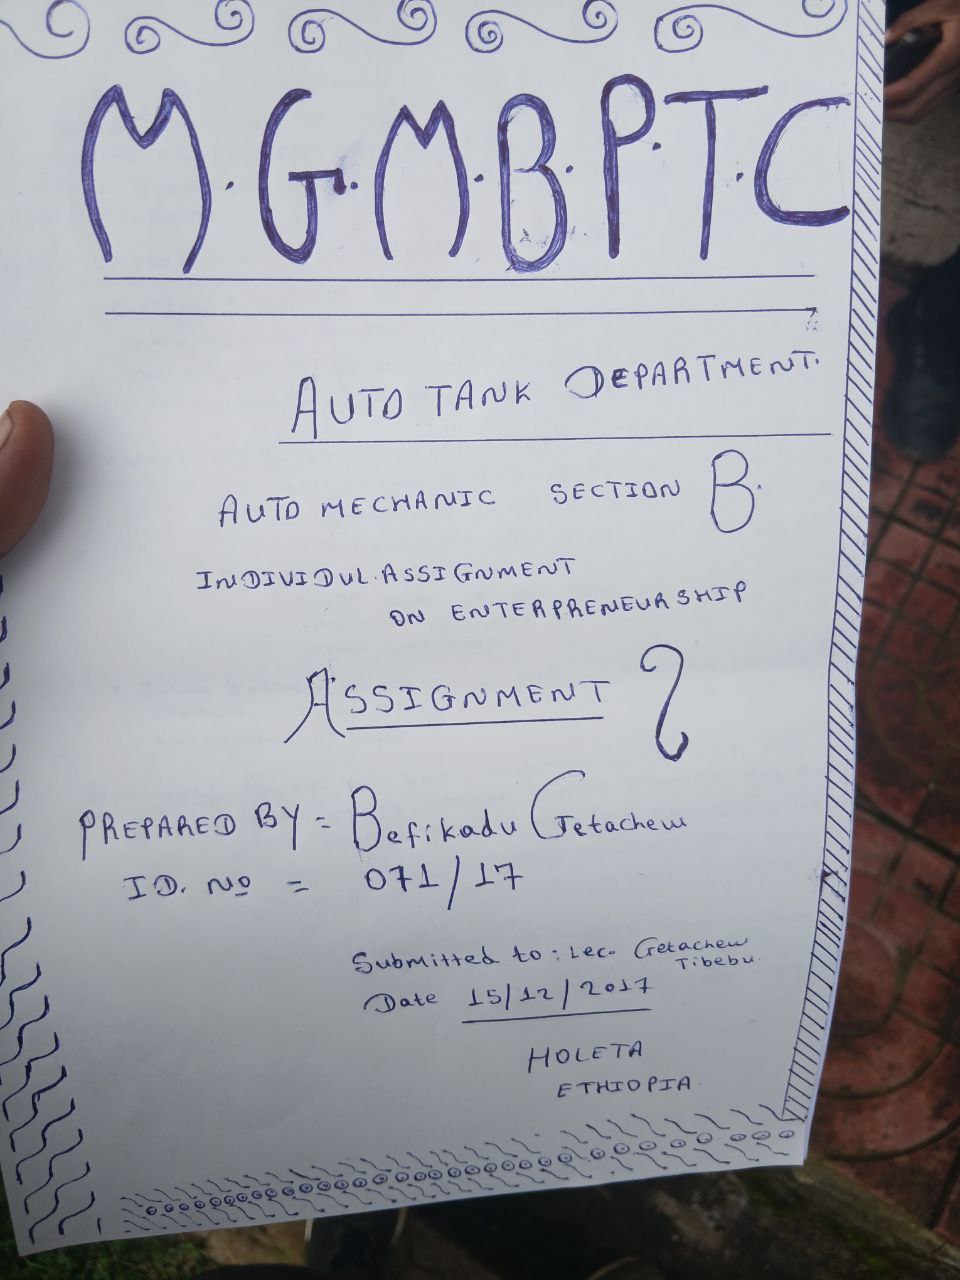 M.G.M.B.P.T.C
AUTO TANK DEPARTMENT.
AUTO MECHANIC SECTION B.
INDIVIDUL.ASSIGNMENT
ON ENTERPRENEURSHIP
ASSIGNMENT ?
PREPARED BY = Befikadu Getachew
ID. No = 071/17
Submitted to: Lec. Getachew
Tibebu.
Date 15/12/2017
HOLETA
ETHIOPIA.